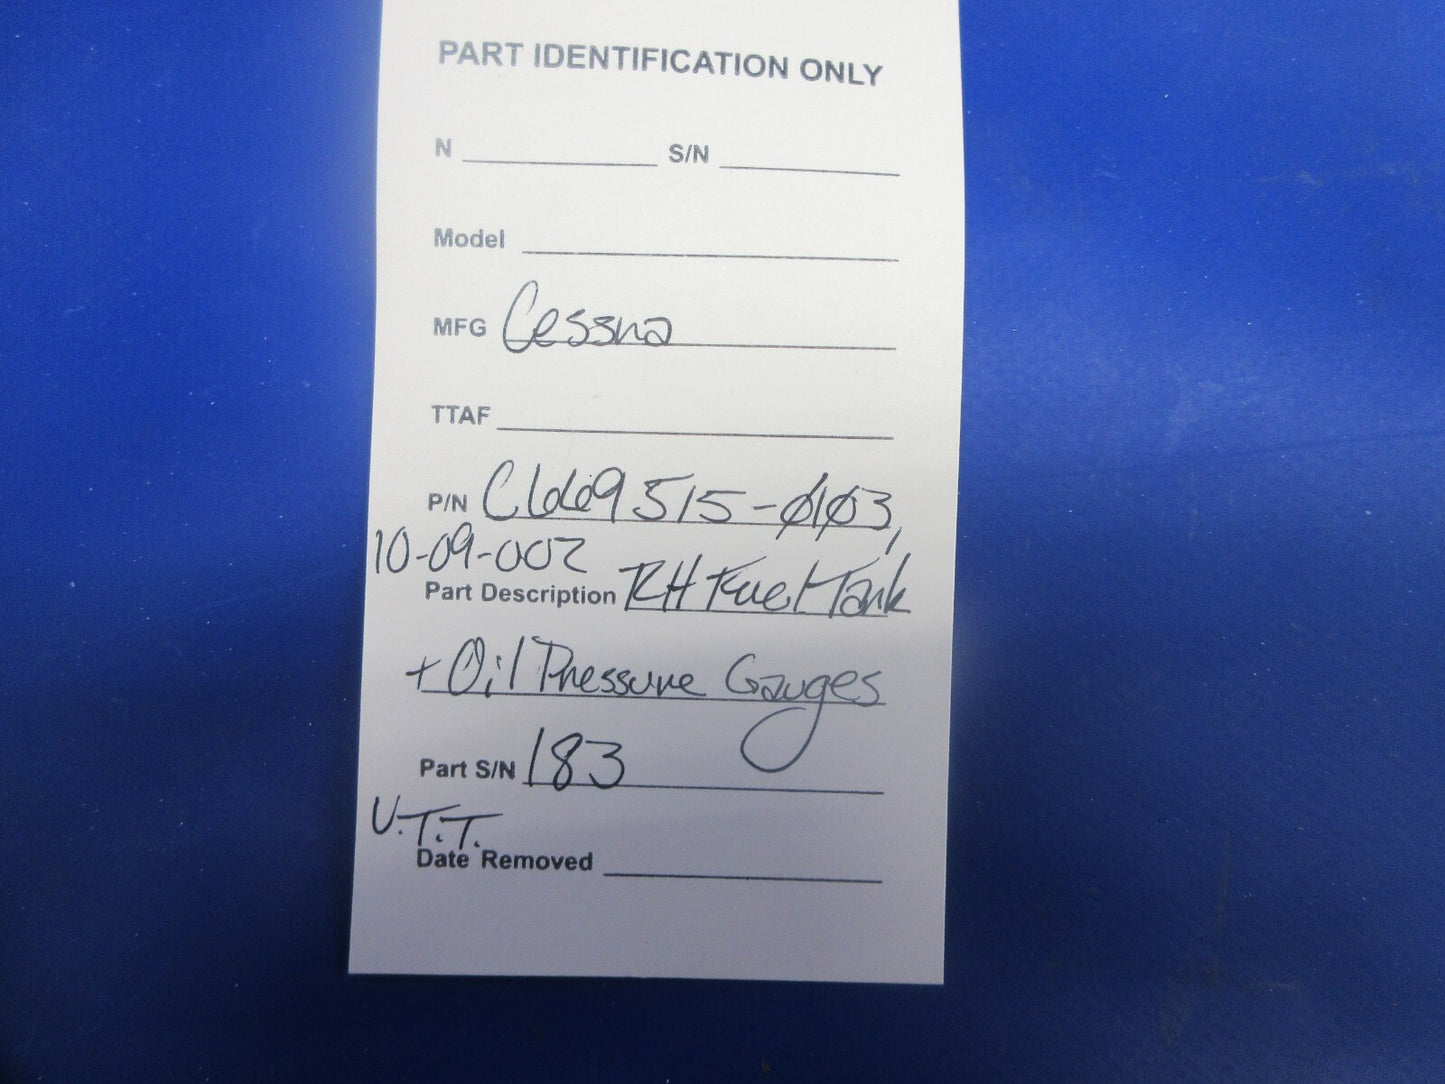 PART IDENTIFICATION ONLY
N S/N
Model
MFG Cessna
TTAF
P/N C669515-0103,
10-09-002
Part Description RH Fuel Tank
+ Oil Pressure Gauges
Part S/N 183
U.T.T.
Date Removed